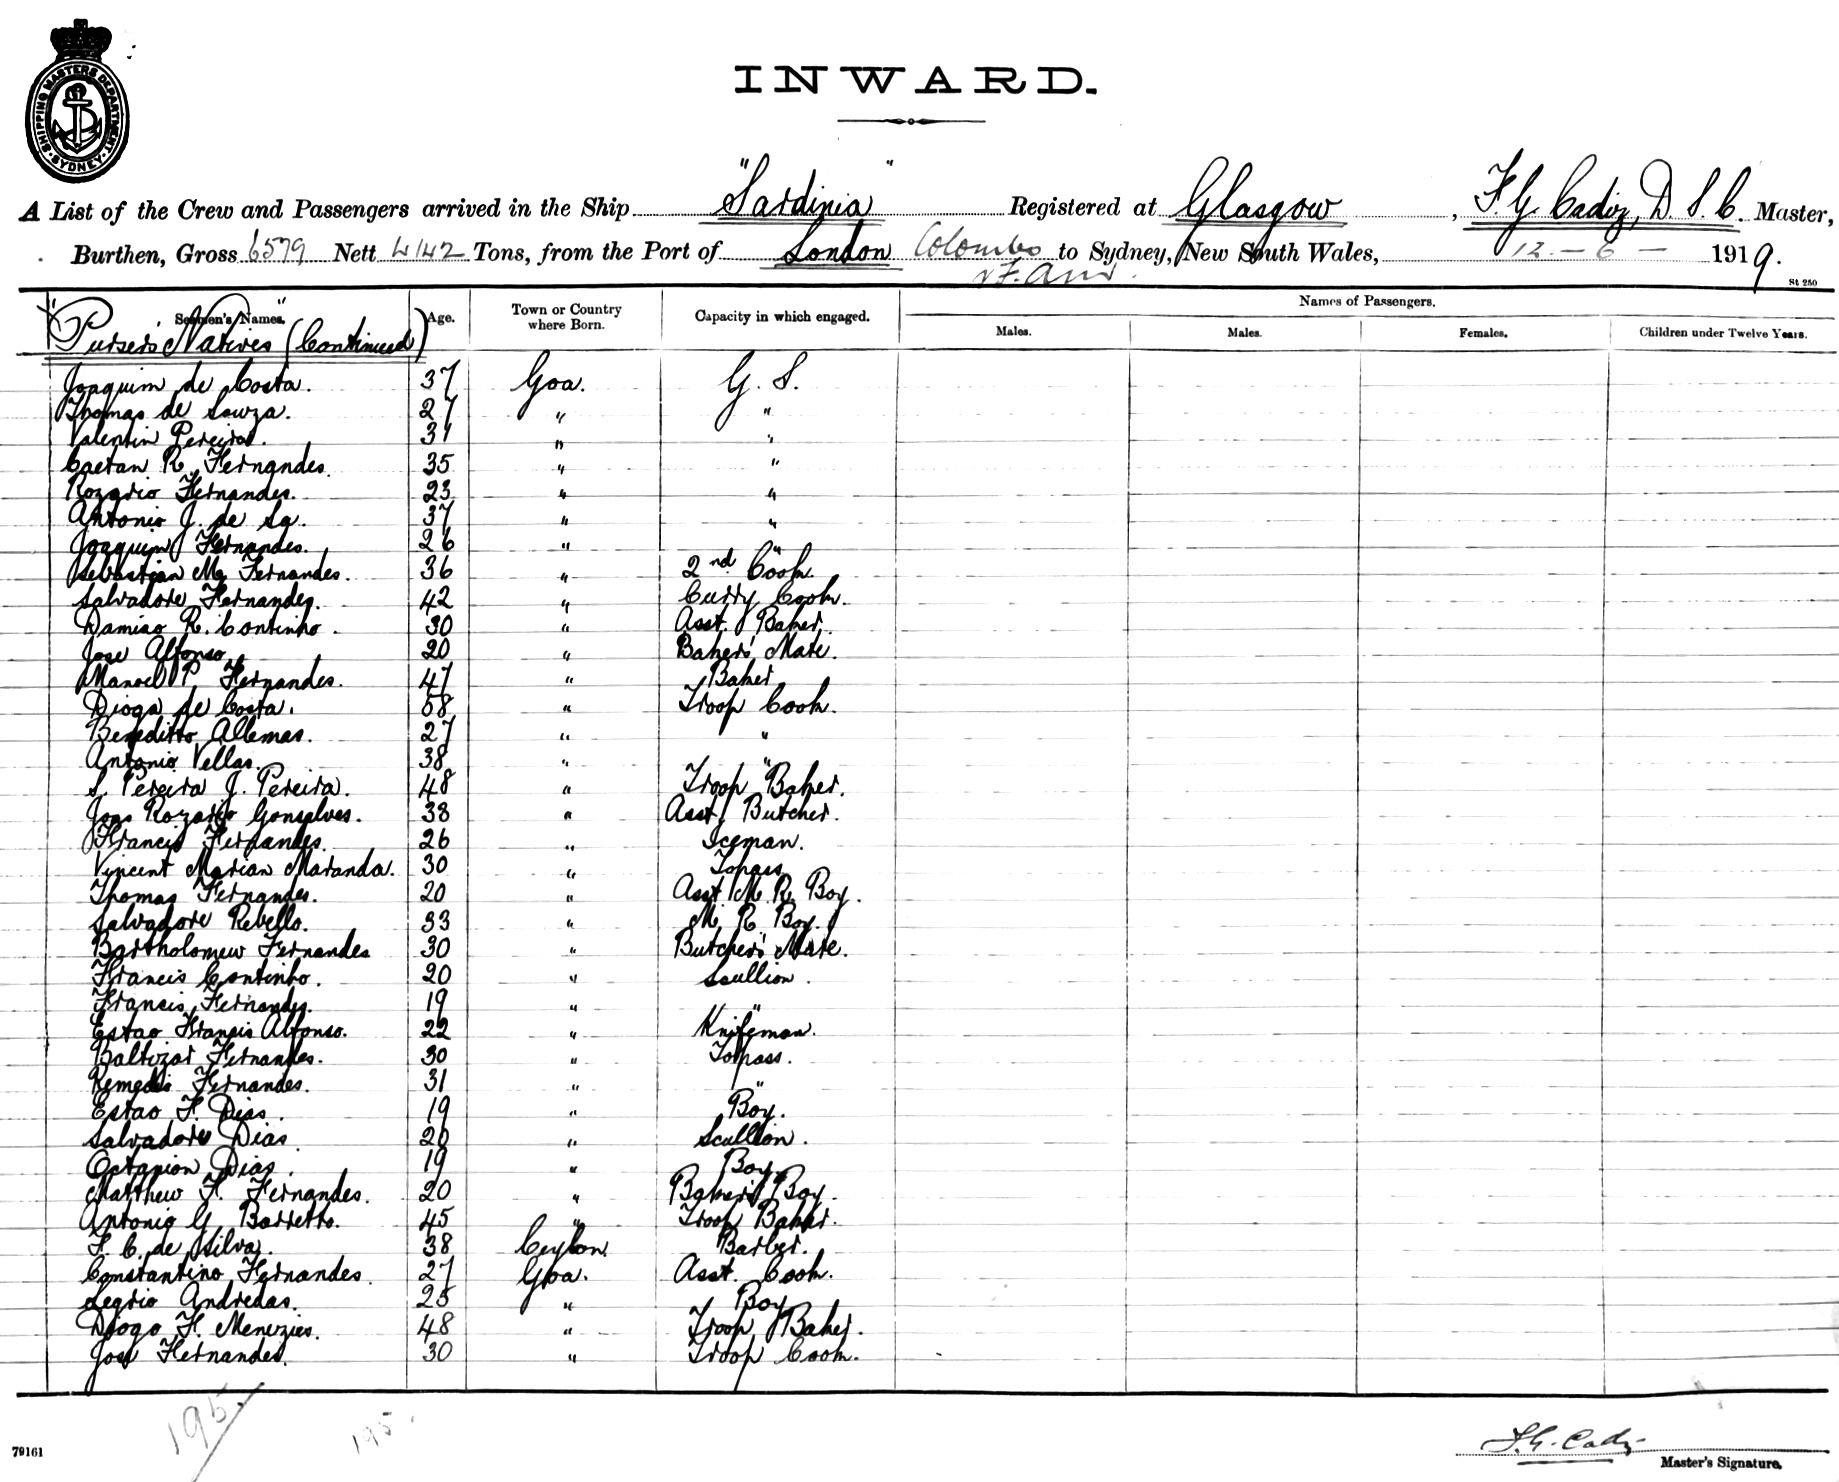 SHIPPING MASTERS DEPARTMENT · SYDNEY ·
INWARD.
A List of the Crew and Passengers arrived in the Ship "Sardinia" Registered at Glasgow, F. G. Cadiz, D. S. C. Master,
Burthen, Gross 6579 Nett 4142 Tons, from the Port of London Colombo to Sydney, New South Wales, 12 - 6 - 1919.
St 250
Seamen's Names. Age. Town or Country where Born. Capacity in which engaged. Names of Passengers.
Males. Males. Females. Children under Twelve Years.
"Purser's Natives" (Continued)
Joaquim de Costa. 37 Goa. G. S.
Thomas de Souza. 27 " "
Valentin Pereira. 31 " "
Caetan R. Fernandes. 35 " "
Rozario Fernandes. 23 " "
Antonio J. de Sa. 37 " "
Joaquim Fernandes. 26 " "
Sebastian M. Fernandes. 36 " 2nd Cook.
Salvadore Fernandes. 42 " Curry Cook.
Damiao R. Continho. 30 " Asst. Baker.
Jose Alfonso. 20 " Bakers' Mate.
Manoel P Fernandes. 47 " Baker
Dioga de Costa. 58 " Troop Cook.
Beneditto Allemas. 27 " "
Antonio Vellas. 38 " "
S. Pereira J. Pereira. 48 " Troop Baker.
Joao Rozario Gonsalves. 38 " Asst. Butcher.
Francis Fernandes. 26 " Iceman.
Vincent Marian Maranda. 30 " Topass
Thomas Fernandes. 20 " Asst. M. R. Boy.
Salvadore Rebello. 33 " M. R. Boy.
Bartholomew Fernandes 30 " Butcher's Mate.
Francis Continho. 20 " Scullion.
Francis Fernandes. 19 " "
Estao Francis Alfonso. 22 " Knifeman.
Baltizar Fernandes. 30 " Topass.
Remedis Fernandes. 31 " "
Estao F. Dias. 19 " Boy.
Salvadore Dias 20 " Scullion.
Octavion Dias. 19 " Boy.
Matthew F. Fernandes. 20 " Baker's Boy.
Antonio G. Barretto. 45 " Troop Baker.
F. C. de Silva. 38 Ceylon. Barber.
Constantino Fernandes. 27 Goa. Asst. Cook.
Legrio Andredas. 25 " Boy
Diogo F. Menezies. 48 " Troop Baker.
Jose Fernandes. 30 " Troop Cook.
195
195.
79161
F. G. Cadiz
Master's Signature.